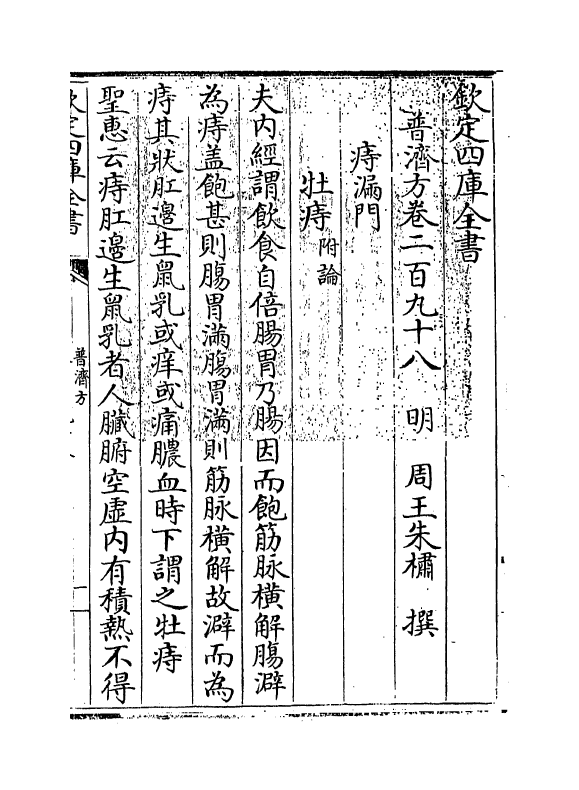 欽定四庫全書
普濟方卷二百九十八　明　周王朱橚　撰
痔漏門
牡痔附論
夫内經謂飲食自倍腸胃乃腸因而飽筋脉橫解腸澼
為痔盖飽甚則腸胃滿腸胃滿則筋脉橫解故澼而為
痔其狀肛邊生鼠乳或痒或痛膿血時下謂之牡痔
聖惠云痔肛邊生鼠乳者人臟腑空虛内有積熱不得
欽定四庫全書
普濟方
一